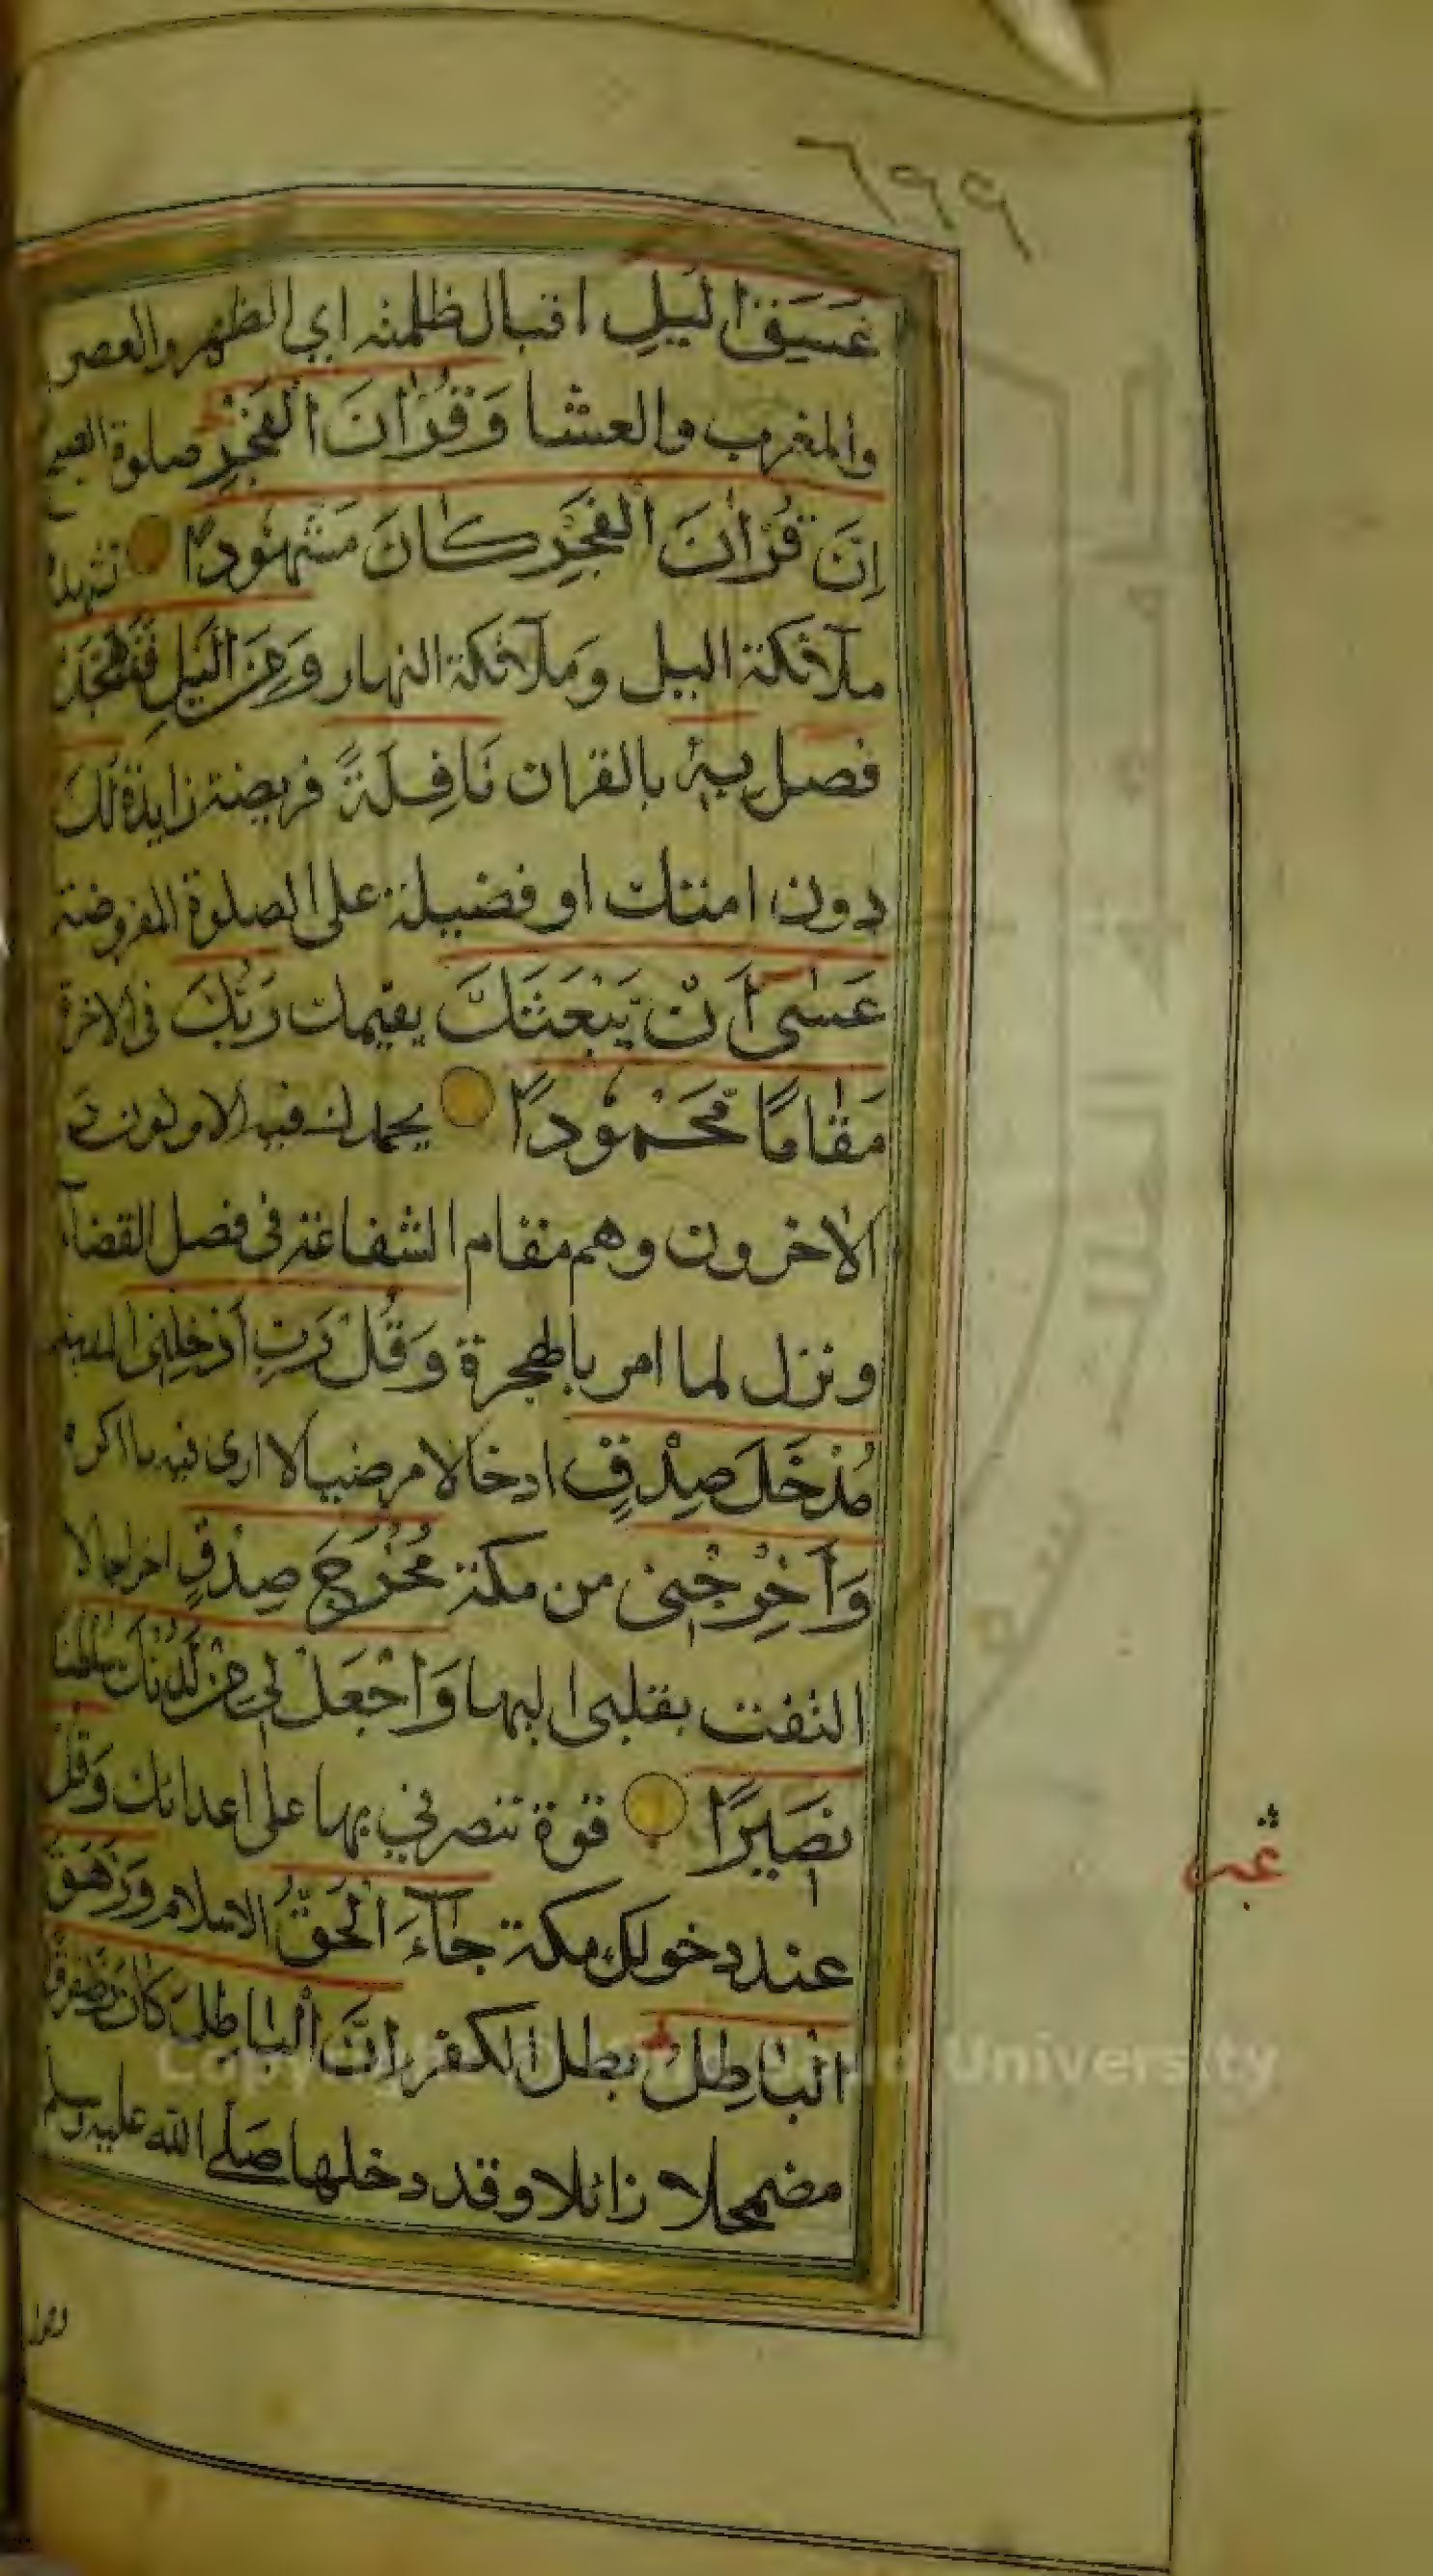 ٦٩٩
غَسَقِ الَّيْلِ اقبال ظلمته اي الظهر والعصر
والمغرب والعشا وَقُرْاٰنَ الْفَجْرِ صلوة الصبح
اِنَّ قُرْاٰنَ الْفَجْرِ كَانَ مَشْهُودًا تشهده
ملآئكة اليل وَملآئكة النهار وَمِنَ الَّيْلِ فَتَهَجَّدْ
فصل بِهٖ بالقران نَافِلَةً فريضة زايدة لَكَ
دون امتك او فضيلة على الصلوة المفروضة
عَسٰى اَنْ يَبْعَثَكَ يقيمك رَبُّكَ فى الاخرة
مَقَامًا مَّحْمُودًا يحمدك فيه الاولون و
الاخرون وهم مقام الشفاعة فى فصل القضآء
ونزل لما امر بالهجرة وَقُلْ رَبِّ اَدْخِلْنِى المدينة
مُدْخَلَ صِدْقٍ ادخالا مرضيا لا ارى فيه ما اكره
وَاَخْرِجْنِى من مكة مُخْرَجَ صِدْقٍ اخراجا لا
التفت بقلبى اليها وَاجْعَلْ لِى مِنْ لَدُنْكَ سُلْطٰنًا
نَصِيرًا قوة تنصرني بها على اعدائك وَقُلْ
عند دخولك مكة جَآءَ الْحَقُّ الاسلام وَزَهَقَ
الْبَاطِلُ بطل الكفر اِنَّ الْبَاطِلَ كَانَ زَهُوقًا
مضمحلا زائلا وقد دخلها صلى الله عليه وسلم
Copy University